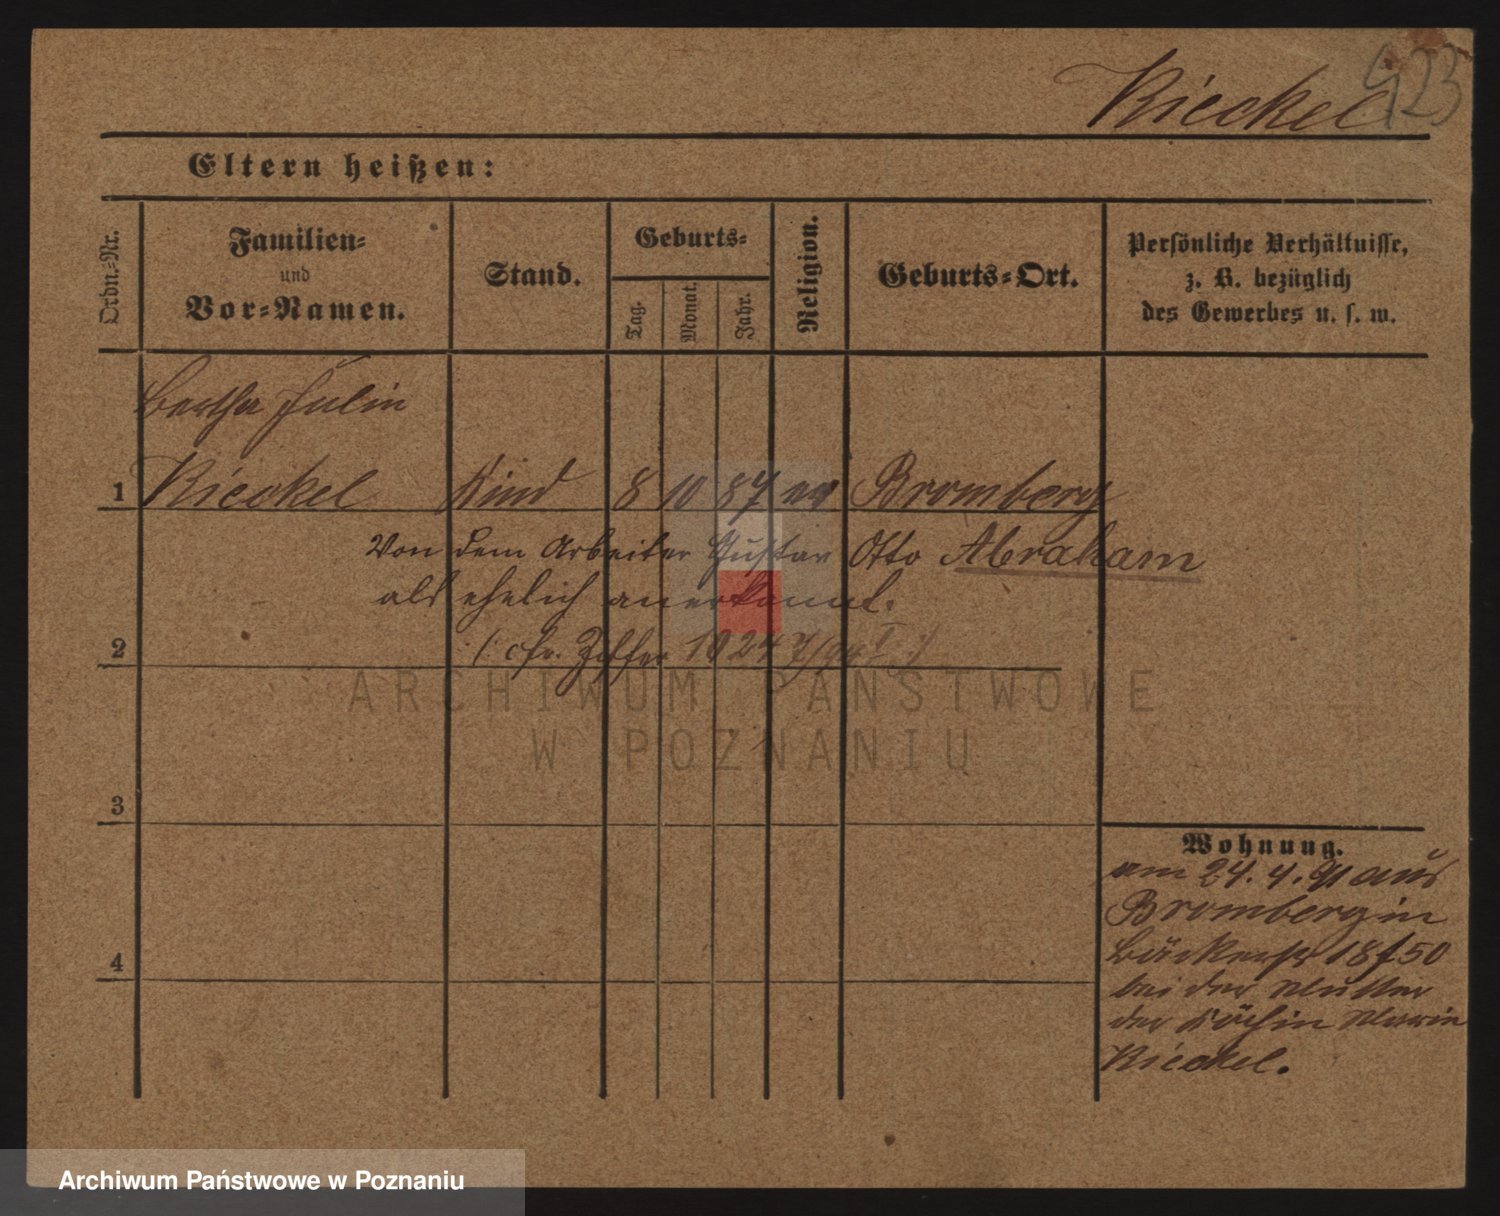 423
Rieckel
Eltern heißen:
Ordn.-Nr.
Familien-
und
Vor-Namen.
Stand.
Geburts-
Tag.
Monat.
Jahr.
Religion.
Geburts-Ort.
Persönliche Verhältnisse,
z. B. bezüglich
des Gewerbes u. s. w.
Bertha Julie
1 Rieckel Kind 8 10 87 ev Bromberg
Von dem Arbeiter Gustav Otto Abraham
als ehelich anerkannt.
2
3
4
Wohnung.
am 24. 4. 91 aus
Bromberg in
18/50
bei der Mutter
der Köchin Marie
Rieckel.
ARCHIWUM PAŃSTWOWE
W POZNANIU
Archiwum Państwowe w Poznaniu